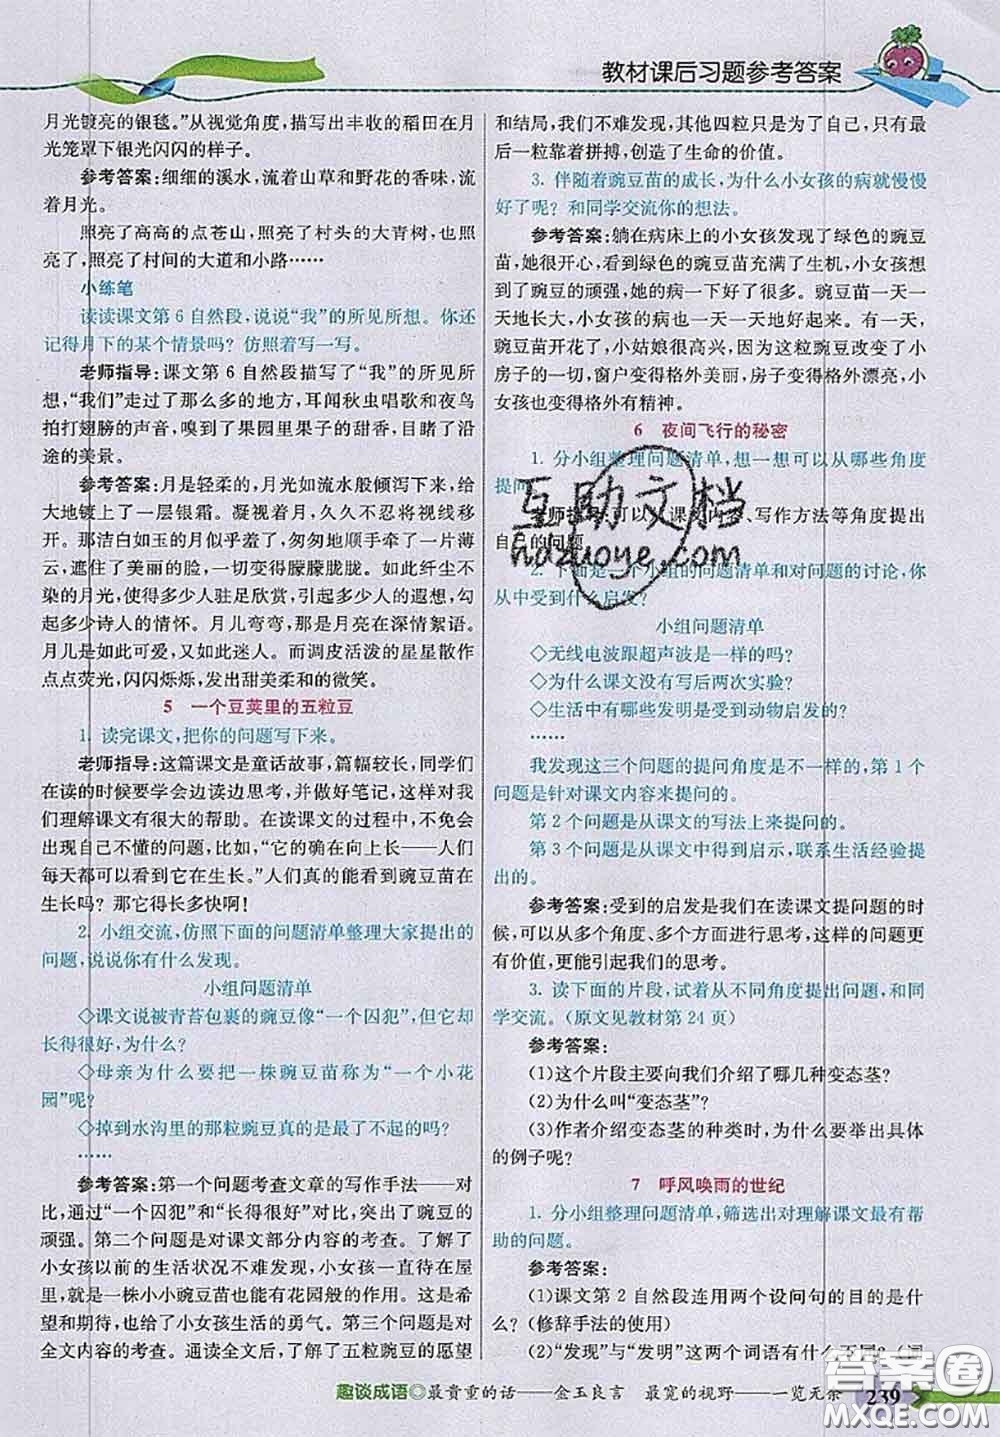 教材课后习题参考答案
月光镀亮的银毯。”从视觉角度,描写出丰收的稻田在月
光笼罩下银光闪闪的样子。
参考答案:细细的溪水,流着山草和野花的香味,流
着月光。
照亮了高高的点苍山,照亮了村头的大青树,也照
亮了,照亮了村间的大道和小路……
小练笔
读读课文第6自然段,说说“我”的所见所想。你还
记得月下的某个情景吗?仿照着写一写。
老师指导:课文第6自然段描写了“我”的所见所
想,“我们”走过了那么多的地方,耳闻秋虫唱歌和夜鸟
拍打翅膀的声音,嗅到了果园里果子的甜香,目睹了沿
途的美景。
参考答案:月是轻柔的,月光如流水般倾泻下来,给
大地铺上了一层银霜。凝视着月光,久久不忍将视线移
开。那洁白如玉的月似乎羞了,匆匆随手牵了一片薄
云,遮住了美丽的脸,一切变得朦朦胧胧。如此纤尘不
染的月光,使得多少人驻足欣赏,引得多少人遐想,勾
起多少诗人的情怀。月儿弯弯,那是月亮在深情絮语。
月儿是如此可爱,又如此迷人。而调皮活泼的星星散作
点点荧光,闪闪烁烁,发出甜美柔和的微笑。
5 一个豆荚里的五粒豆
1. 读完课文,把你的问题写下来。
老师指导:这篇课文是童话故事,篇幅较长,同学们
在读的时候要学会边读边思考,并做好笔记,这样对我
们理解课文有很大的帮助。在读课文的过程中,不免会
出现自己不懂的问题,比如,“它的确在向上长——人们
每天都可以看到它在生长。”人们真的能看到豌豆苗在
生长吗?那它得长多快啊!
2. 小组交流,仿照下面的问题清单整理大家提出的
问题,说说你有什么发现。
小组问题清单
◇课文说被青苔包裹的豌豆像“一个囚犯”,但它却
长得很好,为什么?
◇母亲为什么要把一株豌豆苗称为“一个小花
园”呢?
◇掉到水沟里的那粒豌豆真的是最了不起的吗?
……
参考答案:第一个问题考查文章的写作手法——对
比,通过“一个囚犯”和“长得很好”对比,突出了豌豆的
顽强。第二个问题是对课文部分内容的考查。了解了
小女孩以前的生活状况不难发现,小女孩一直待在屋
里,就是这样的一株小小豌豆苗也能有花园般的作用。
这株植物虽小,却充满了生机,给了小女孩战胜病魔的希
望和期待,也给了小女孩生活的勇气。第三个问题是对
全文内容的考查。通读全文后,了解了五粒豌豆的愿望
和结局,我们不难发现,其他四粒只是为了自己,只有最
后一粒靠着拼搏,创造了生命的价值。
3. 伴随着豌豆苗的成长,为什么小女孩的病就慢慢
好了呢?和同学交流你的想法。
参考答案:躺在病床上的小女孩发现了绿色的豌豆
苗,她很开心,看到绿色的豌豆苗充满了生机,小女孩感
到了豌豆的顽强,她的病一下子好了很多。豌豆苗一天一
天地长大,小女孩的病也一天一天地好起来。有一天,
豌豆苗开花了,小姑娘很高兴,因为这粒豌豆改变了小
房子的一切,窗户变得格外美丽,房子变得格外漂亮,小
女孩也变得格外有精神。
6 夜间飞行的秘密
1. 分小组整理问题清单,想一想可以从哪些角度
提问。
老师指导:可以从课文内容、写作方法等角度提出
自己的问题。
2. 下面是一个小组的问题清单和对问题的讨论,你
从中受到什么启发?
小组问题清单
◇无线电波跟超声波是一样的吗?
◇为什么课文没有写后两次实验?
◇生活中有哪些发明是受到动物启发的?
……
我发现这三个问题的提问角度是不一样的,第1个
问题是针对课文内容来提问的。
第2个问题是从课文的写法上来提问的。
第3个问题是从课文中得到启示,联系生活经验提
出的。
参考答案:受到的启发是我们在读课文提问题的时
候,可以从多个角度、多个方面进行思考,这样的问题更
有价值,更能引起我们的思考。
3. 读下面的片段,试着从不同角度提出问题,和同
学交流。(原文见教材第24页)
参考答案:
(1)这个片段主要向我们介绍了哪几种变态茎?
(2)为什么叫“变态茎”?
(3)作者介绍变态茎的种类时,为什么要举出具体
的例子呢?
7 呼风唤雨的世纪
1. 分小组整理问题清单,筛选出对理解课文最有帮
助的问题。
参考答案:
(1)课文第2自然段连用两个设问句的目的是什
么?(修辞手法的使用)
(2)“发现”与“发明”这两个词语有什么不同?
趣谈成语◎最贵重的话——金玉良言 最宽的视野——一览无余
239
互助文档
hdzuoye.com
答案圈
MXQE.COM